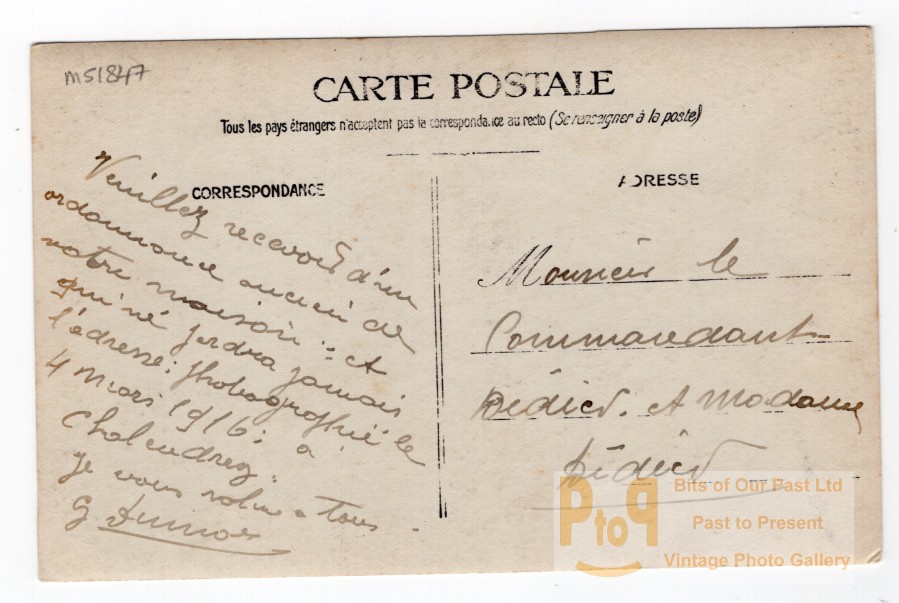 m51847
CARTE POSTALE
Tous les pays étrangers n'acceptent pas la correspondance au recto (Se renseigner à la poste)
CORRESPONDANCE
Veuillez recevoir d'un
ordonnance ancien de
votre maison : et
qui né perdra jamais
l'adresse : photographié le
4 mars 1916 : à
Je vous salue a Tous.
G
ADRESSE
Monsieur le
Commandant
et Madame
Bits of Our Past Ltd
PtoP
Past to Present
Vintage Photo Gallery